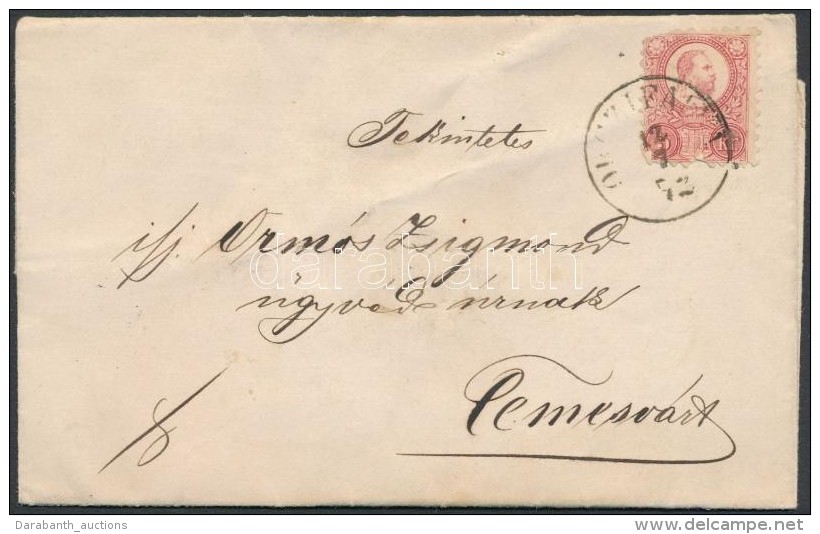 Tekintetes
ifj. Ormós Zsigmond
ügyvéd úrnak
Temesvárt
12
7
72
darabanth
Darabanth_auctions
www.delcampe.net